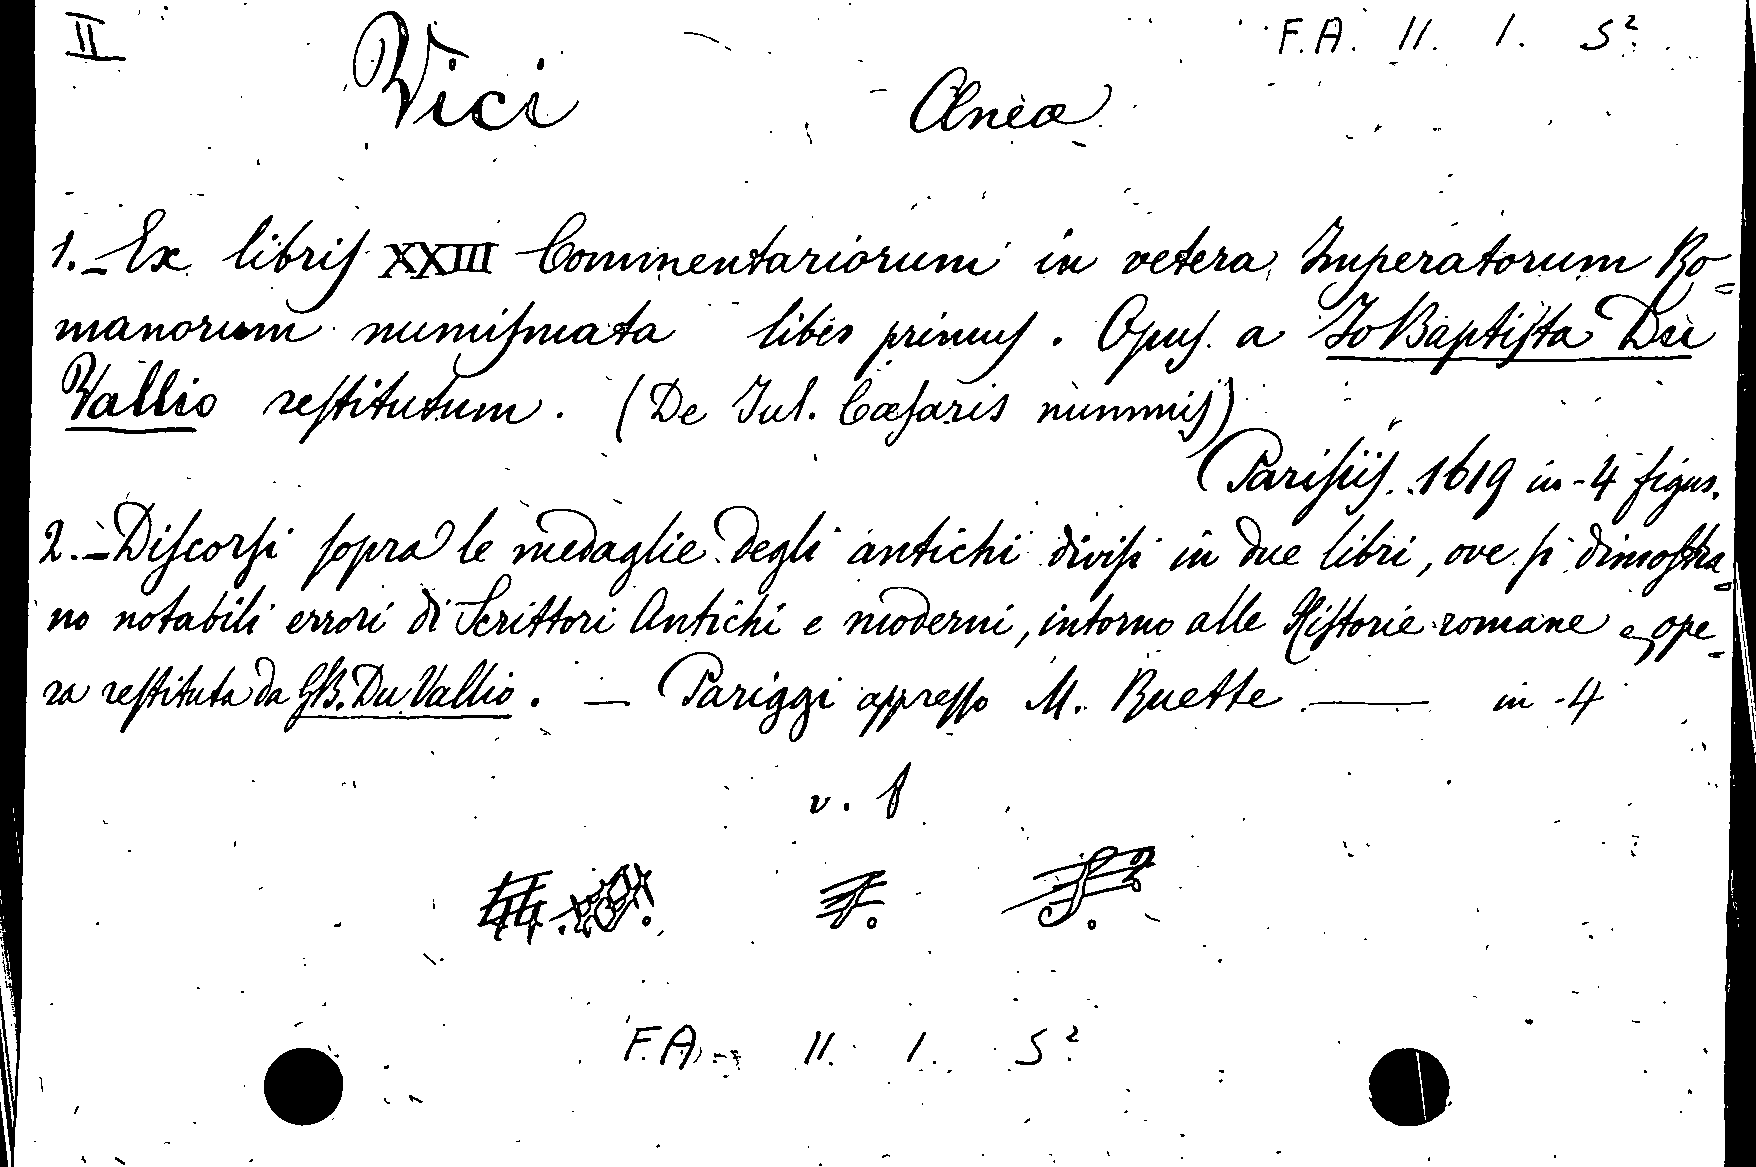 II Vici Aneæ F.A. II. 1. 5².
1.- Ex libris XXIII Commentariorum in vetera Imperatorum Ro=
manorum numismata liber primus. Opus a Jo Baptista Du
Vallio restitutum. (De Jul. Cæsaris nummis)
Parisiis. 1619 in-4 figur.
2.- Discorsi sopra le medaglie degli antichi divisi in due libri, ove si dimostra=
no notabili errori di Scrittori Antichi e moderni, intorno alle Historie romane e, ope=
ra restituta da GB. Du Vallio. — Pariggi appresso M. Ruette —— in-4
v. 1
F.A. II. 1. 5²